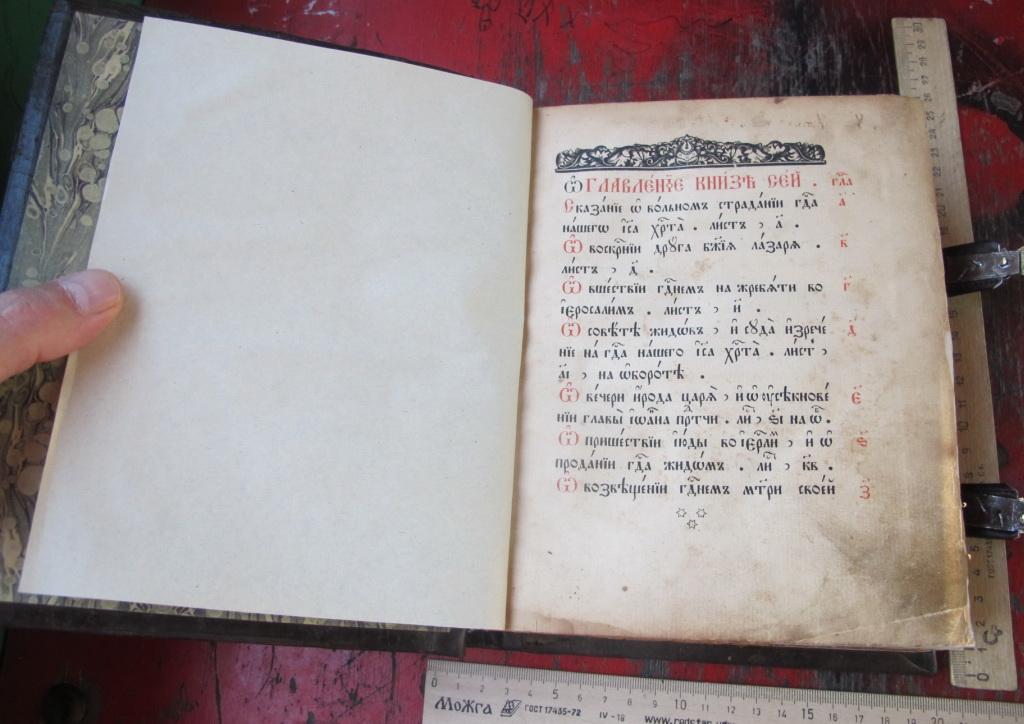 Ѡ҆ГЛАВЛЕ́НЇЕ КНИ́ЗѢ СЕ́Й . гла҃
Сказа́нїе ѡ҆ во́льномъ страда́нїи гдⷭ҇а а҃
на́шегѡ і҆с҃а хрⷭ҇та̀ . ли́стъ , а҃ .
Ѡ҆ воскрⷭ҇нїи дрꙋ́га бж҃їѧ ла́зарѧ . в҃
ли́стъ , д҃ .
Ѡ҆ вше́ствїи гдⷭ҇немъ на жребѧ́ти во г҃
і҆еросали́мъ . ли́стъ , и҃ .
Ѡ҆ совѣ́тѣ жидѡ́въ , и҆ сꙋда̀ и҆зрече́ д҃
нїе на́ гдⷭ҇а на́шего і҆с҃а хрⷭ҇та̀ . ли́ст ,
а҃і , на ѡ҆боро́тѣ .
Ѡ҆ ве́чери и҆́рода царѧ̀ , и҆ ѡ҆ ᲂу҆сѣкнове́ є҃
нїи главы̀ і҆ѡа́нна прⷣте́чи . ли́ , є҃і на ѡ҆б .
Ѡ҆ прише́ствїи і҆ю́ды во і҆ерⷭ҇ли́м , и҆ ѡ҆ ѕ҃
прода́нїи гдⷭ҇а жидѡ́мъ . ли́ , к҃в .
Ѡ҆ возвѣще́нїи гдⷭ҇немъ мт҃ри свое́й з҃
Можга ГОСТ 17435-72 IV-18